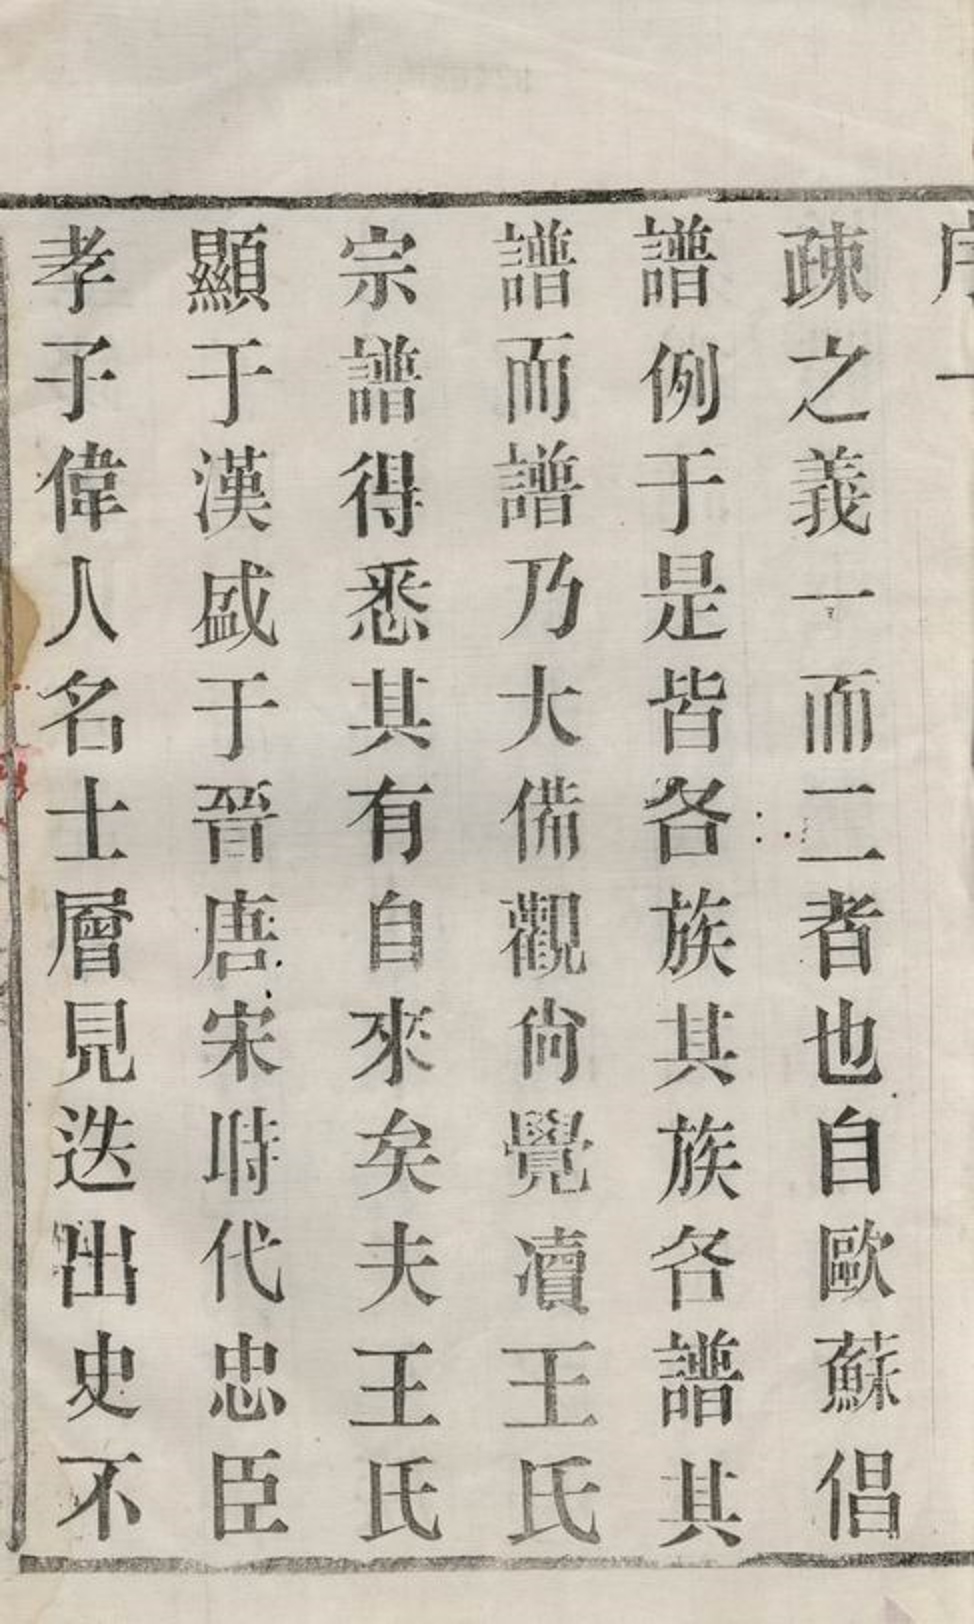 序 一
疎之義一而二者也自歐蘇倡
譜例于是皆各族其族各譜其
譜而譜乃大備觀尙覺凟王氏
宗譜得悉其有自來矣夫王氏
顯于漢盛于晉唐宋時代忠臣
孝子偉人名士層見迭出史不